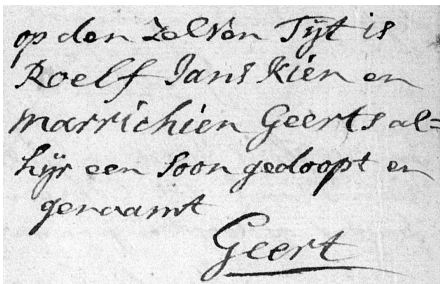 op den zelven Tijt is
Roelf Jans Kien en
marrichien Geerts al=
hijr een soon gedoopt en
genaamt
Geert